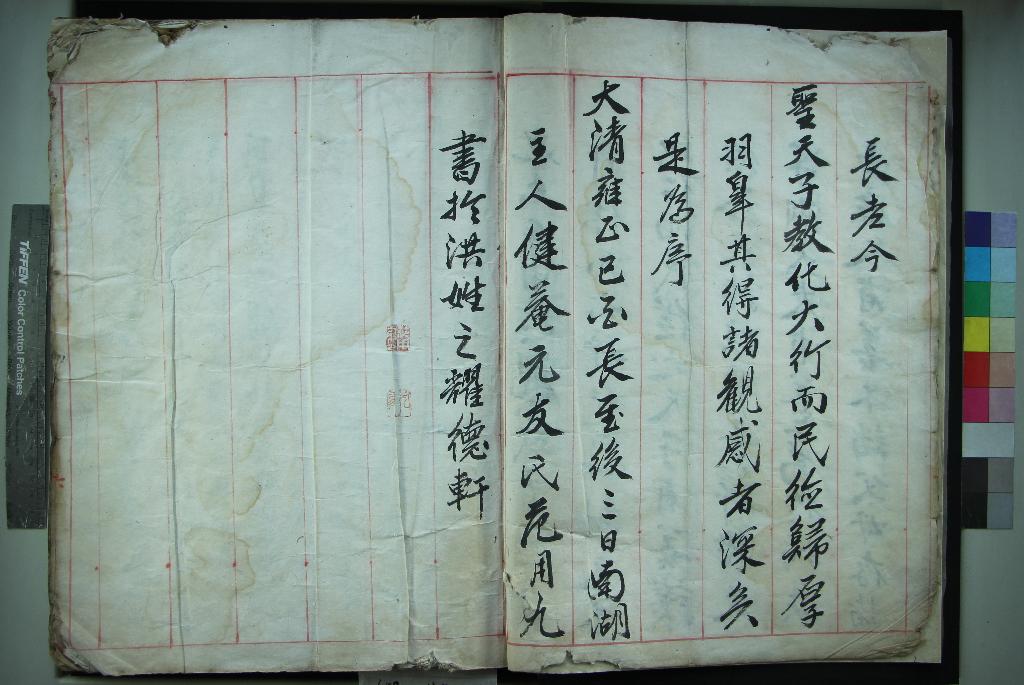 長老今
聖天子教化大行而民德歸厚
羽皐其得諸觀感者深矣
是為序
大清雍正己酉長至後三日南湖
主人健菴元友氏范用九
書於洪姓之耀德軒
TIFFEN Color Control Patches